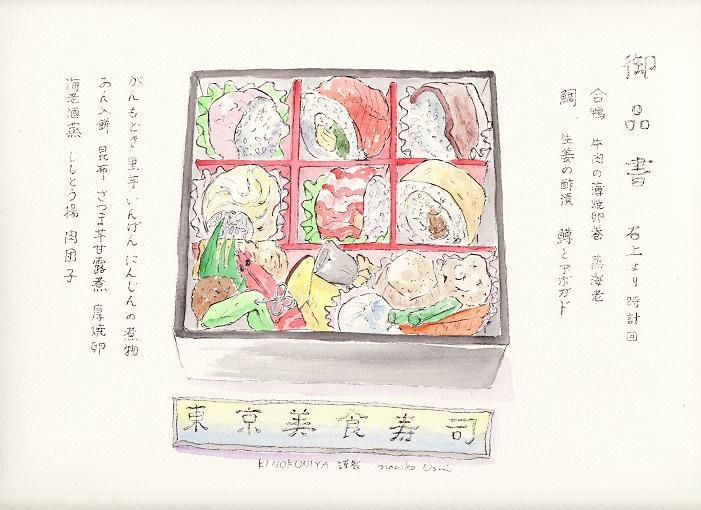 御品書 右上より時計回
合鴨 牛肉の薄焼卵巻 蒸海老
鯛、生姜の酢漬 鱒とアボガド
がんもどき 里芋 いんげん にんじんの煮物
あん入餅 昆布 さつま芋甘露煮 厚焼卵
海老酒蒸 ししとう揚 肉団子
東京美食寿司
KINOKUNIYA 謹製 noriko Usui